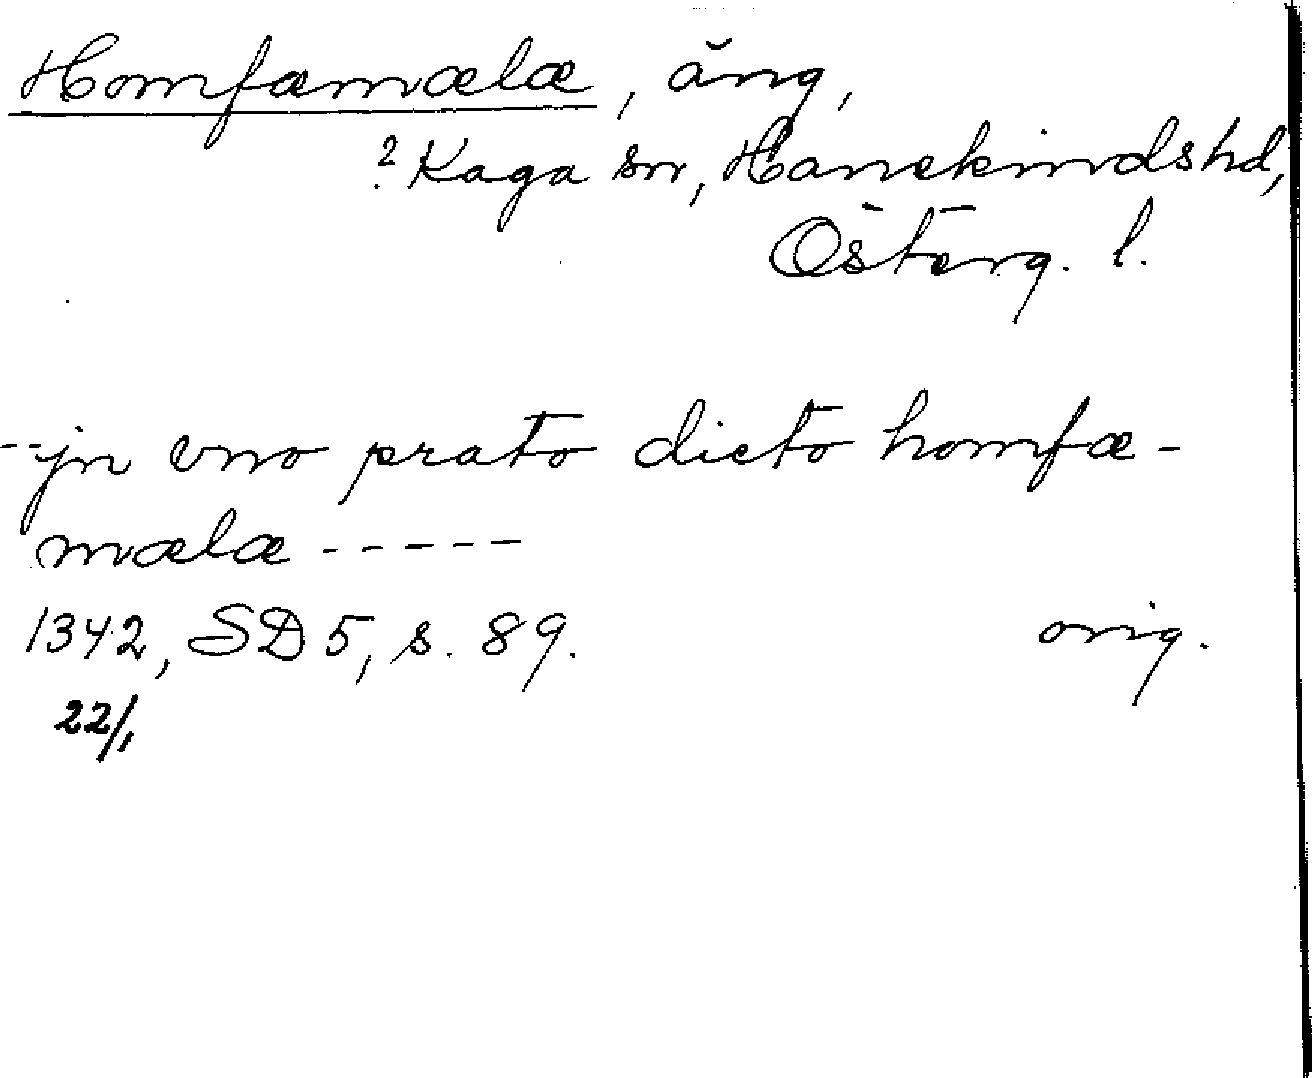 Homfæmælæ, äng,
? Kaga sn, Hanekindshd,
Österg. l.
-- jn vno prato dicto homfæ-
mælæ -----
1342, SD 5, s. 89. orig.
22/1